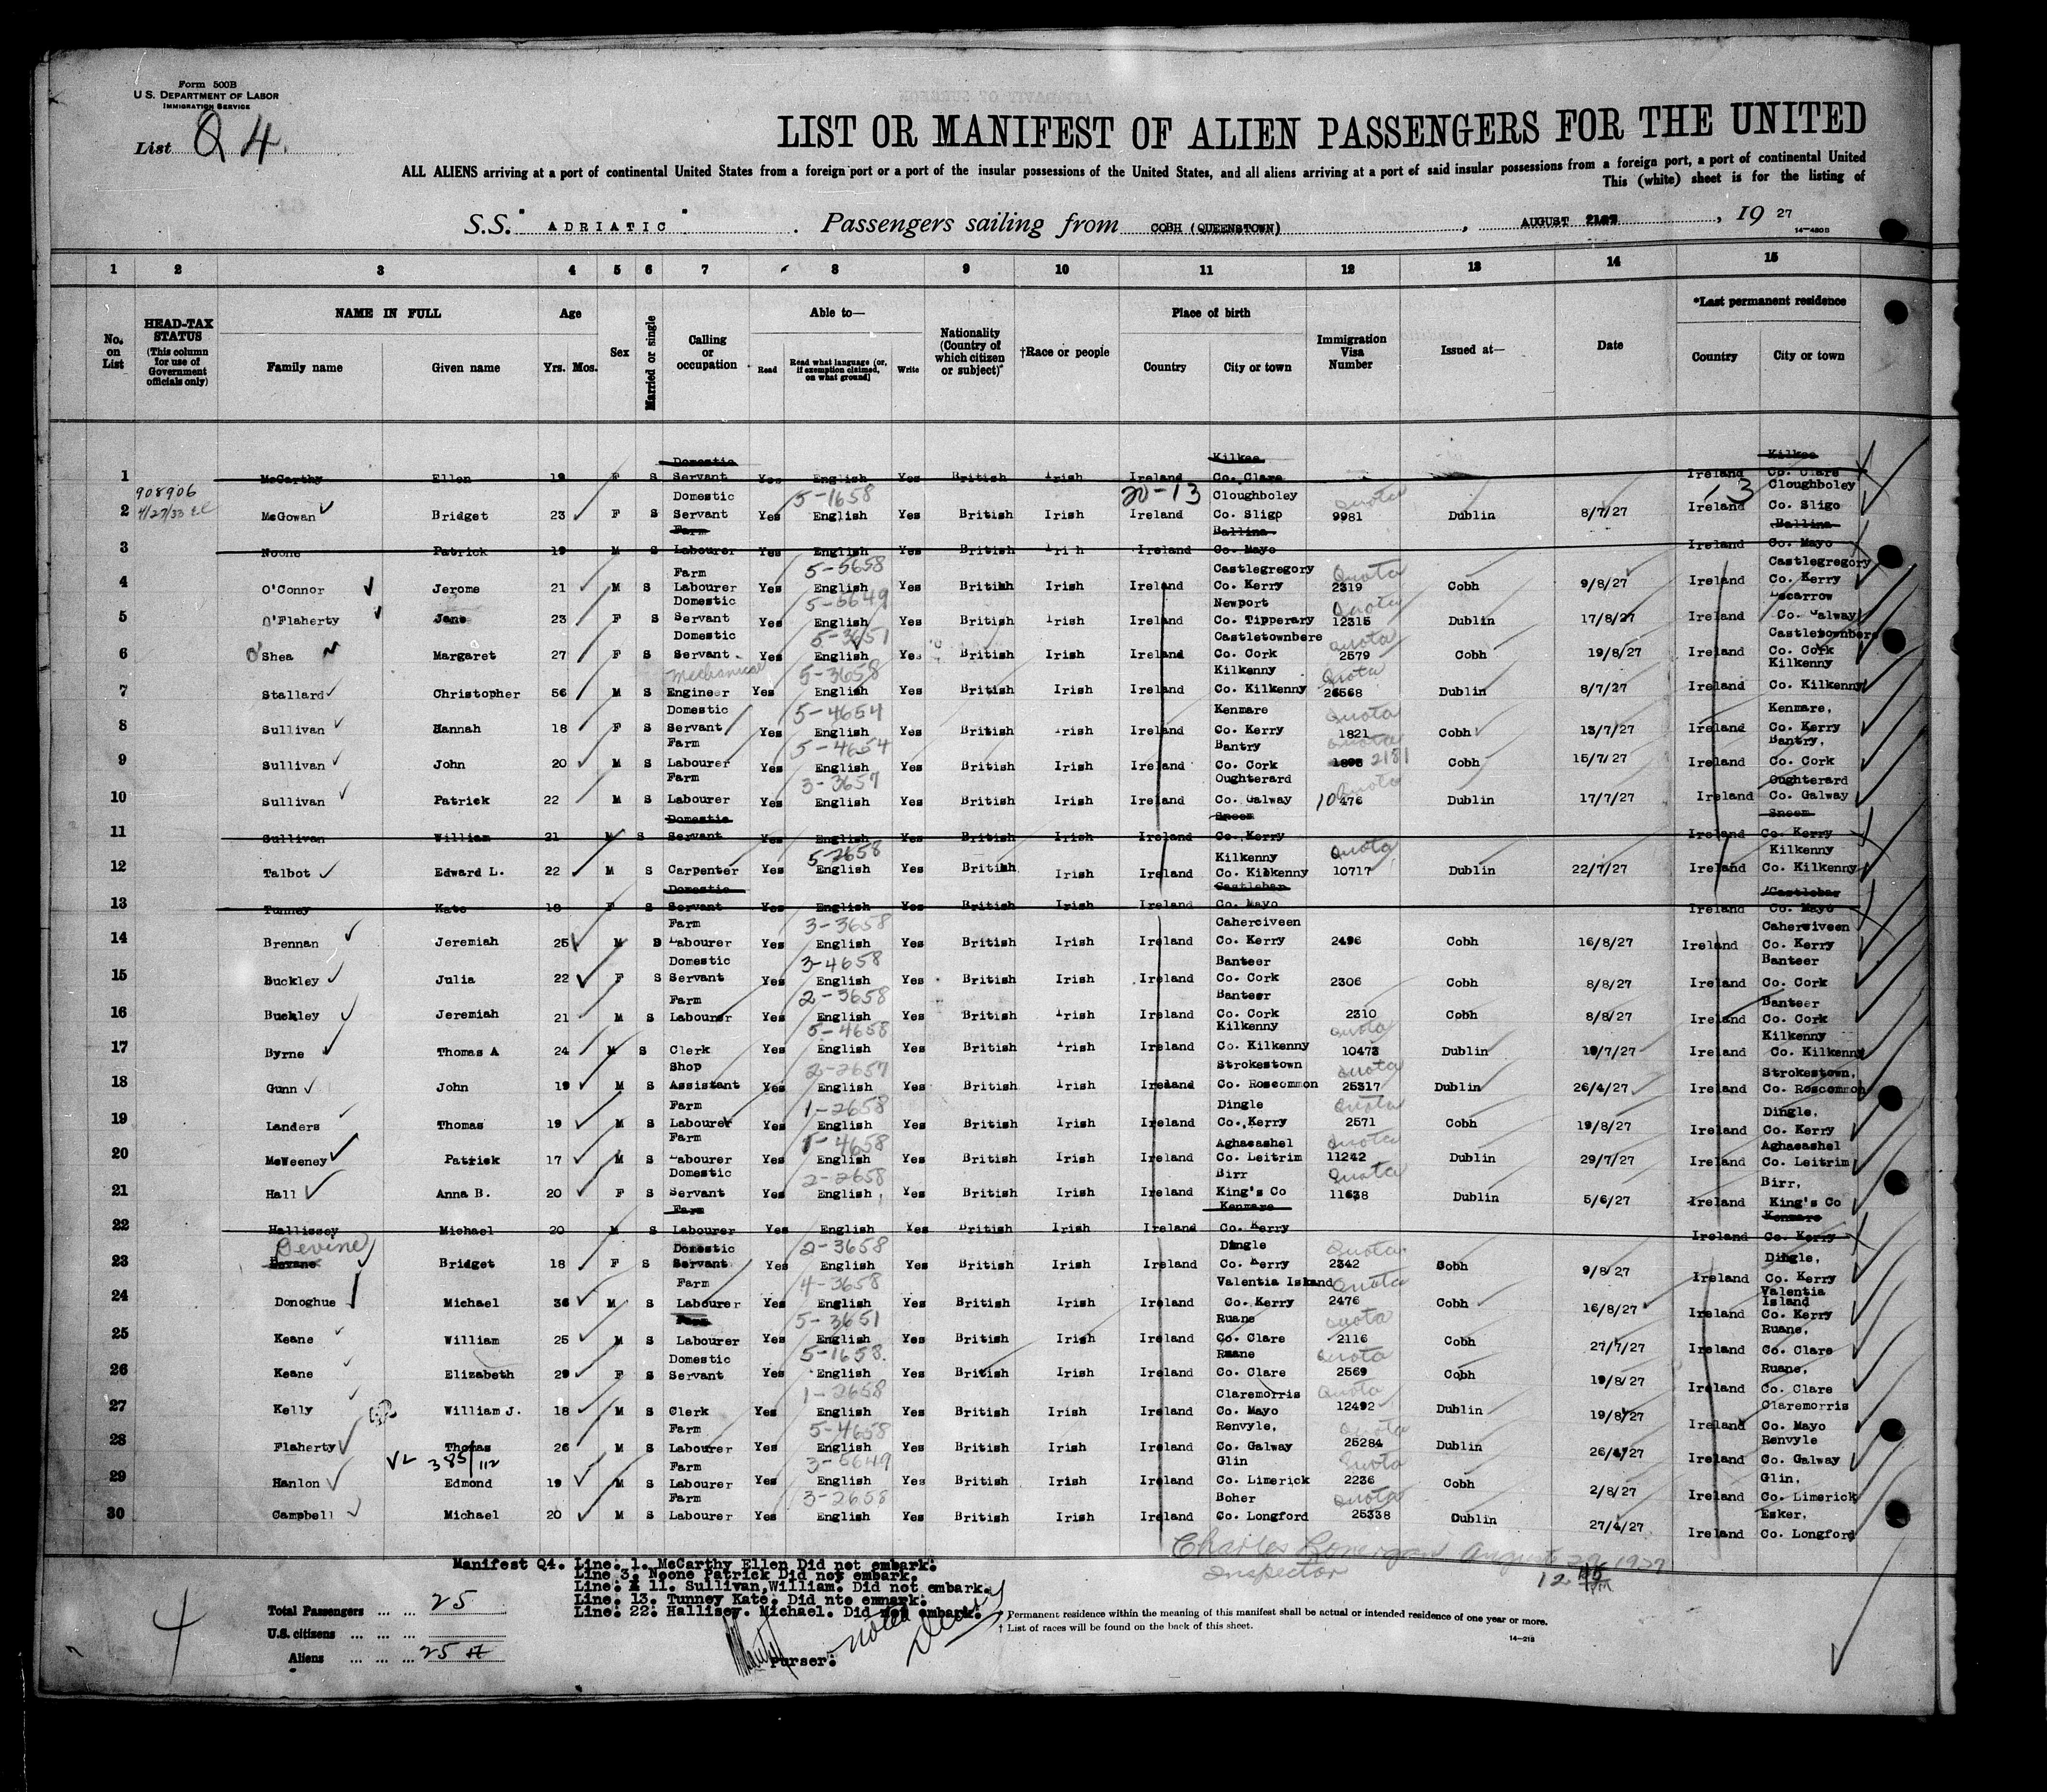 Form 500B
U.S. DEPARTMENT OF LABOR
IMMIGRATION SERVICE
List Q 4.
LIST OR MANIFEST OF ALIEN PASSENGERS FOR THE UNITED
ALL ALIENS arriving at a port of continental United States from a foreign port or a port of the insular possessions of the United States, and all aliens arriving at a port of said insular possessions from a foreign port, a port of continental United
This (white) sheet is for the listing of
S.S. "ADRIATIC". Passengers sailing from COBH (QUEENSTOWN), AUGUST, 19 27
14—480B
1 2 3 4 5 6 7 8 9 10 11 12 13 14 15
No. on List
HEAD-TAX STATUS (This column for use of Government officials only)
NAME IN FULL Family name Given name
Age Yrs. Mos.
Sex
Married or single
Calling or occupation
Able to— Read Read what language (or, if exemption claimed, on what ground) Write
Nationality (Country of which citizen or subject)*
†Race or people
Place of birth Country City or town
Immigration Visa Number
Issued at—
Date
*Last permanent residence Country City or town
1 McCarthy Ellen 19 F S Domestic Servant Yes English Yes British Irish Ireland Kilkee Co. Clare Ireland Kilkee Co. Clare
908906 4/27/33
2 McGowan Bridget 23 F S Domestic Servant Yes 5-1658 English Yes British Irish 20-13 Ireland Cloughboley Co. Sligo Quota 9981 Dublin 8/7/27 Ireland Cloughboley Co. Sligo
3 Noone Patrick 19 M S Farm Labourer Yes English Yes British Irish Ireland Ballina Co. Mayo Ireland Ballina Co. Mayo
4 O'Connor Jerome 21 M S Farm Labourer Yes 5-5658 English Yes British Irish Ireland Castlegregory Co. Kerry Quota 2319 Cobh 9/8/27 Ireland Castlegregory Co. Kerry
5 O'Flaherty Jane 23 F S Domestic Servant Yes 5-5649 English Yes British Irish Ireland Newport Co. Tipperary Quota 12315 Dublin 17/8/27 Ireland Lecarrow Co. Galway
6 O'Shea Margaret 27 F S Domestic Servant Yes 5-3651 English Yes British Irish Ireland Castletownbere Co. Cork Quota 2579 Cobh 19/8/27 Ireland Castletownbere Co. Cork
7 Stallard Christopher 56 M S Mechanical Engineer Yes 5-3658 English Yes British Irish Ireland Kilkenny Co. Kilkenny Quota 26568 Dublin 8/7/27 Ireland Kilkenny Co. Kilkenny
8 Sullivan Hannah 18 F S Domestic Servant Yes 5-4654 English Yes British Irish Ireland Kenmare Co. Kerry Quota 1821 Cobh 13/7/27 Ireland Kenmare, Co. Kerry
9 Sullivan John 20 M S Farm Labourer Yes 5-4654 English Yes British Irish Ireland Bantry Co. Cork Quota 2181 Cobh 15/7/27 Ireland Bantry, Co. Cork
10 Sullivan Patrick 22 M S Farm Labourer Yes 3-3657 English Yes British Irish Ireland Oughterard Co. Galway Quota 10476 Dublin 17/7/27 Ireland Oughterard Co. Galway
11 Sullivan William 21 M S Domestic Servant Yes English Yes British Irish Ireland Sneem Co. Kerry Ireland Sneem Co. Kerry
12 Talbot Edward L. 22 M S Carpenter Yes 5-2658 English Yes British Irish Ireland Kilkenny Co. Kilkenny Quota 10717 Dublin 22/7/27 Ireland Kilkenny Co. Kilkenny
13 Tunney Kate 18 F S Domestic Servant Yes English Yes British Irish Ireland Castlebar Co. Mayo Ireland Castlebar Co. Mayo
14 Brennan Jeremiah 25 M S Farm Labourer Yes 3-3658 English Yes British Irish Ireland Caherciveen Co. Kerry 2496 Cobh 16/8/27 Ireland Caherciveen Co. Kerry
15 Buckley Julia 22 F S Domestic Servant Yes 3-4658 English Yes British Irish Ireland Banteer Co. Cork 2306 Cobh 8/8/27 Ireland Banteer Co. Cork
16 Buckley Jeremiah 21 M S Farm Labourer Yes 2-3658 English Yes British Irish Ireland Banteer Co. Cork 2310 Cobh 8/8/27 Ireland Banteer Co. Cork
17 Byrne Thomas A 24 M S Clerk Yes 5-4658 English Yes British Irish Ireland Kilkenny Co. Kilkenny Quota 10473 Dublin 19/7/27 Ireland Kilkenny Co. Kilkenny
18 Gunn John 19 M S Shop Assistant Yes 2-2657 English Yes British Irish Ireland Strokestown Co. Roscommon Quota 25317 Dublin 26/4/27 Ireland Strokestown, Co. Roscommon
19 Landers Thomas 19 M S Farm Labourer Yes 1-2658 English Yes British Irish Ireland Dingle Co. Kerry Quota 2571 Cobh 19/8/27 Ireland Dingle, Co. Kerry
20 McWeeney Patrick 17 M S Farm Labourer Yes 1-4658 English Yes British Irish Ireland Aghacashel Co. Leitrim Quota 11242 Dublin 29/7/27 Ireland Aghacashel Co. Leitrim
21 Hall Anna B. 20 F S Domestic Servant Yes 2-2658 English Yes British Irish Ireland Birr King's Co Quota 11638 Dublin 5/6/27 Ireland Birr, King's Co
22 Hallissey Michael 20 M S Farm Labourer Yes English Yes British Irish Ireland Kenmare Co. Kerry Ireland Kenmare Co. Kerry
23 Devine Bridget 18 F S Domestic Servant Yes 2-3658 English Yes British Irish Ireland Dingle Co. Kerry Quota 2342 Cobh 9/8/27 Ireland Dingle, Co. Kerry
24 Donoghue Michael 36 M S Farm Labourer Yes 4-3658 English Yes British Irish Ireland Valentia Island Co. Kerry Quota 2476 Cobh 16/8/27 Ireland Valentia Island Co. Kerry
25 Keane William 25 M S Farm Labourer Yes 5-3651 English Yes British Irish Ireland Ruane Co. Clare Quota 2116 Cobh 27/7/27 Ireland Ruane, Co. Clare
26 Keane Elizabeth 29 F S Domestic Servant Yes 5-1658 English Yes British Irish Ireland Ruane Co. Clare Quota 2569 Cobh 19/8/27 Ireland Ruane, Co. Clare
27 Kelly William J. 18 M S Clerk Yes 1-2658 English Yes British Irish Ireland Claremorris Co. Mayo Quota 12492 Dublin 19/8/27 Ireland Claremorris Co. Mayo
28 Flaherty Thomas 26 M S Farm Labourer Yes 5-4658 English Yes British Irish Ireland Renvyle, Co. Galway Quota 25284 Dublin 26/4/27 Ireland Renvyle Co. Galway
VL 385/112
29 Hanlon Edmond 19 M S Farm Labourer Yes 3-5649 English Yes British Irish Ireland Glin Co. Limerick Quota 2236 Cobh 2/8/27 Ireland Glin, Co. Limerick
30 Campbell Michael 20 M S Farm Labourer Yes 3-2658 English Yes British Irish Ireland Boher Co. Longford Quota 25338 Dublin 27/4/27 Ireland Esker, Co. Longford
Manifest Q4. Line: 1. McCarthy Ellen Did not embark:
Line 3: Noone Patrick Did not embark.
Line: 11. Sullivan, William. Did not embark.
Line: 13. Tunney Kate. Did nte emnark:
Line: 22: Hallisey. Michael. Did not embark:
Charles Lonergan August 1927
Inspector
4
Total Passengers ... ... 25
U.S. citizens ... ... ...
Aliens ... ... ... 25
noted
Purser:
* Permanent residence within the meaning of this manifest shall be actual or intended residence of one year or more.
† List of races will be found on the back of this sheet.
14—213